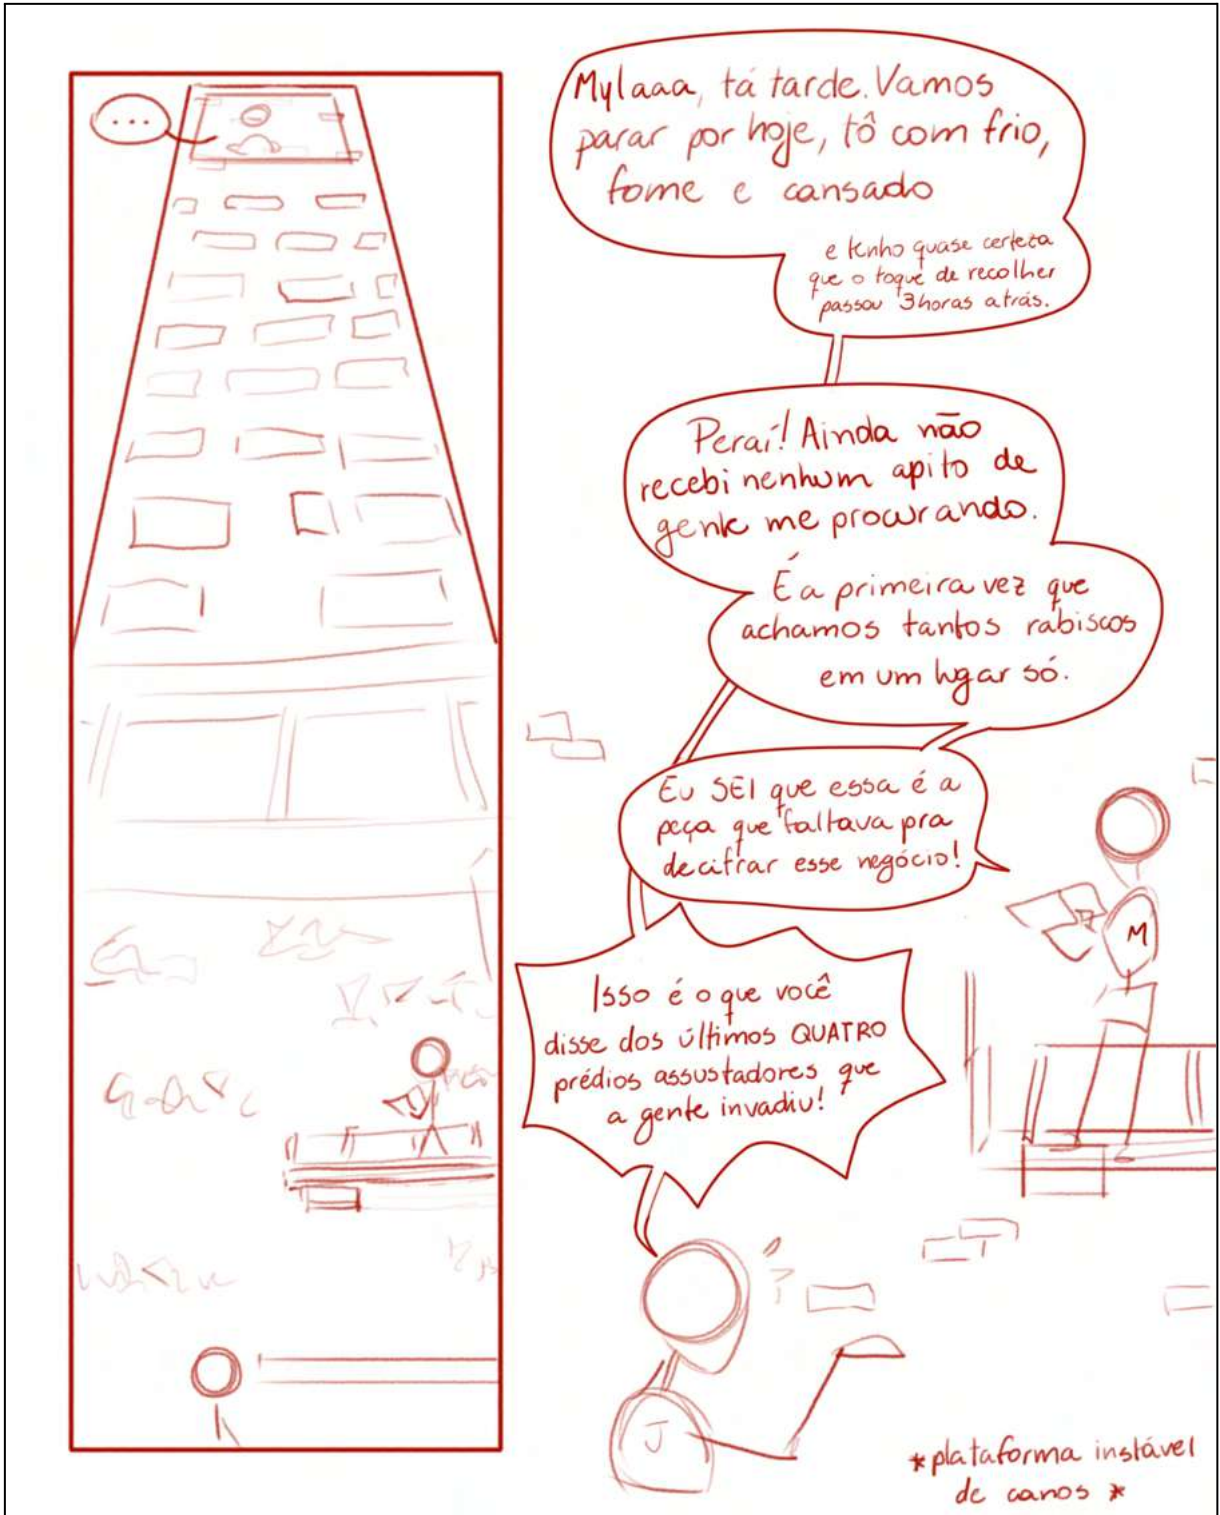 ...
Mylaaa, tá tarde. Vamos
parar por hoje, tô com frio,
fome e cansado
e tenho quase certeza
que o toque de recolher
passou 3 horas atrás.
Peraí! Ainda não
recebi nenhum apito de
gente me procurando.
É a primeira vez que
achamos tantos rabiscos
em um lugar só.
Eu SEI que essa é a
peça que faltava pra
decifrar esse negócio!
M
Isso é o que você
disse dos últimos QUATRO
prédios assustadores que
a gente invadiu!
J
*plataforma instável
de canos *